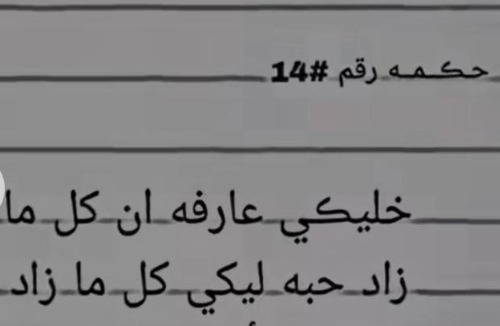 حكمه رقم #14
خليكي عارفه ان كل ما
زاد حبه ليكي كل ما زاد